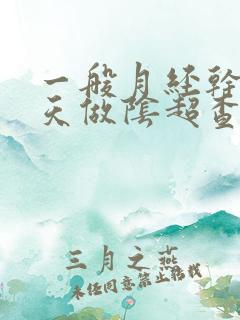 一般月经干
天做陰超查
三月之燕
未经同意禁止转载